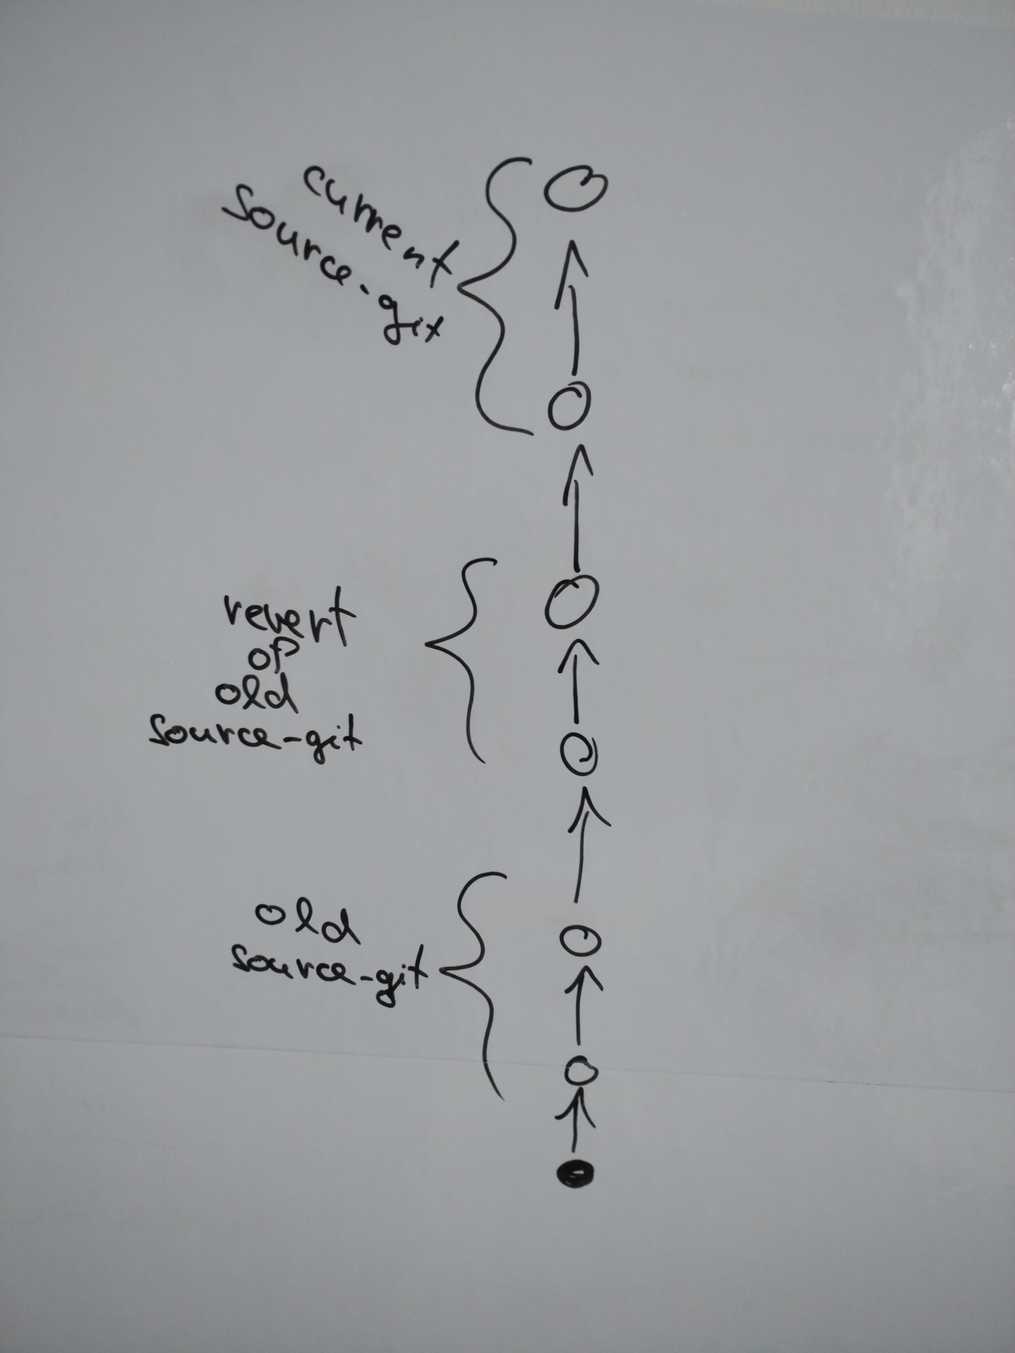 current
source-git
revert
of
old
source-git
old
source-git